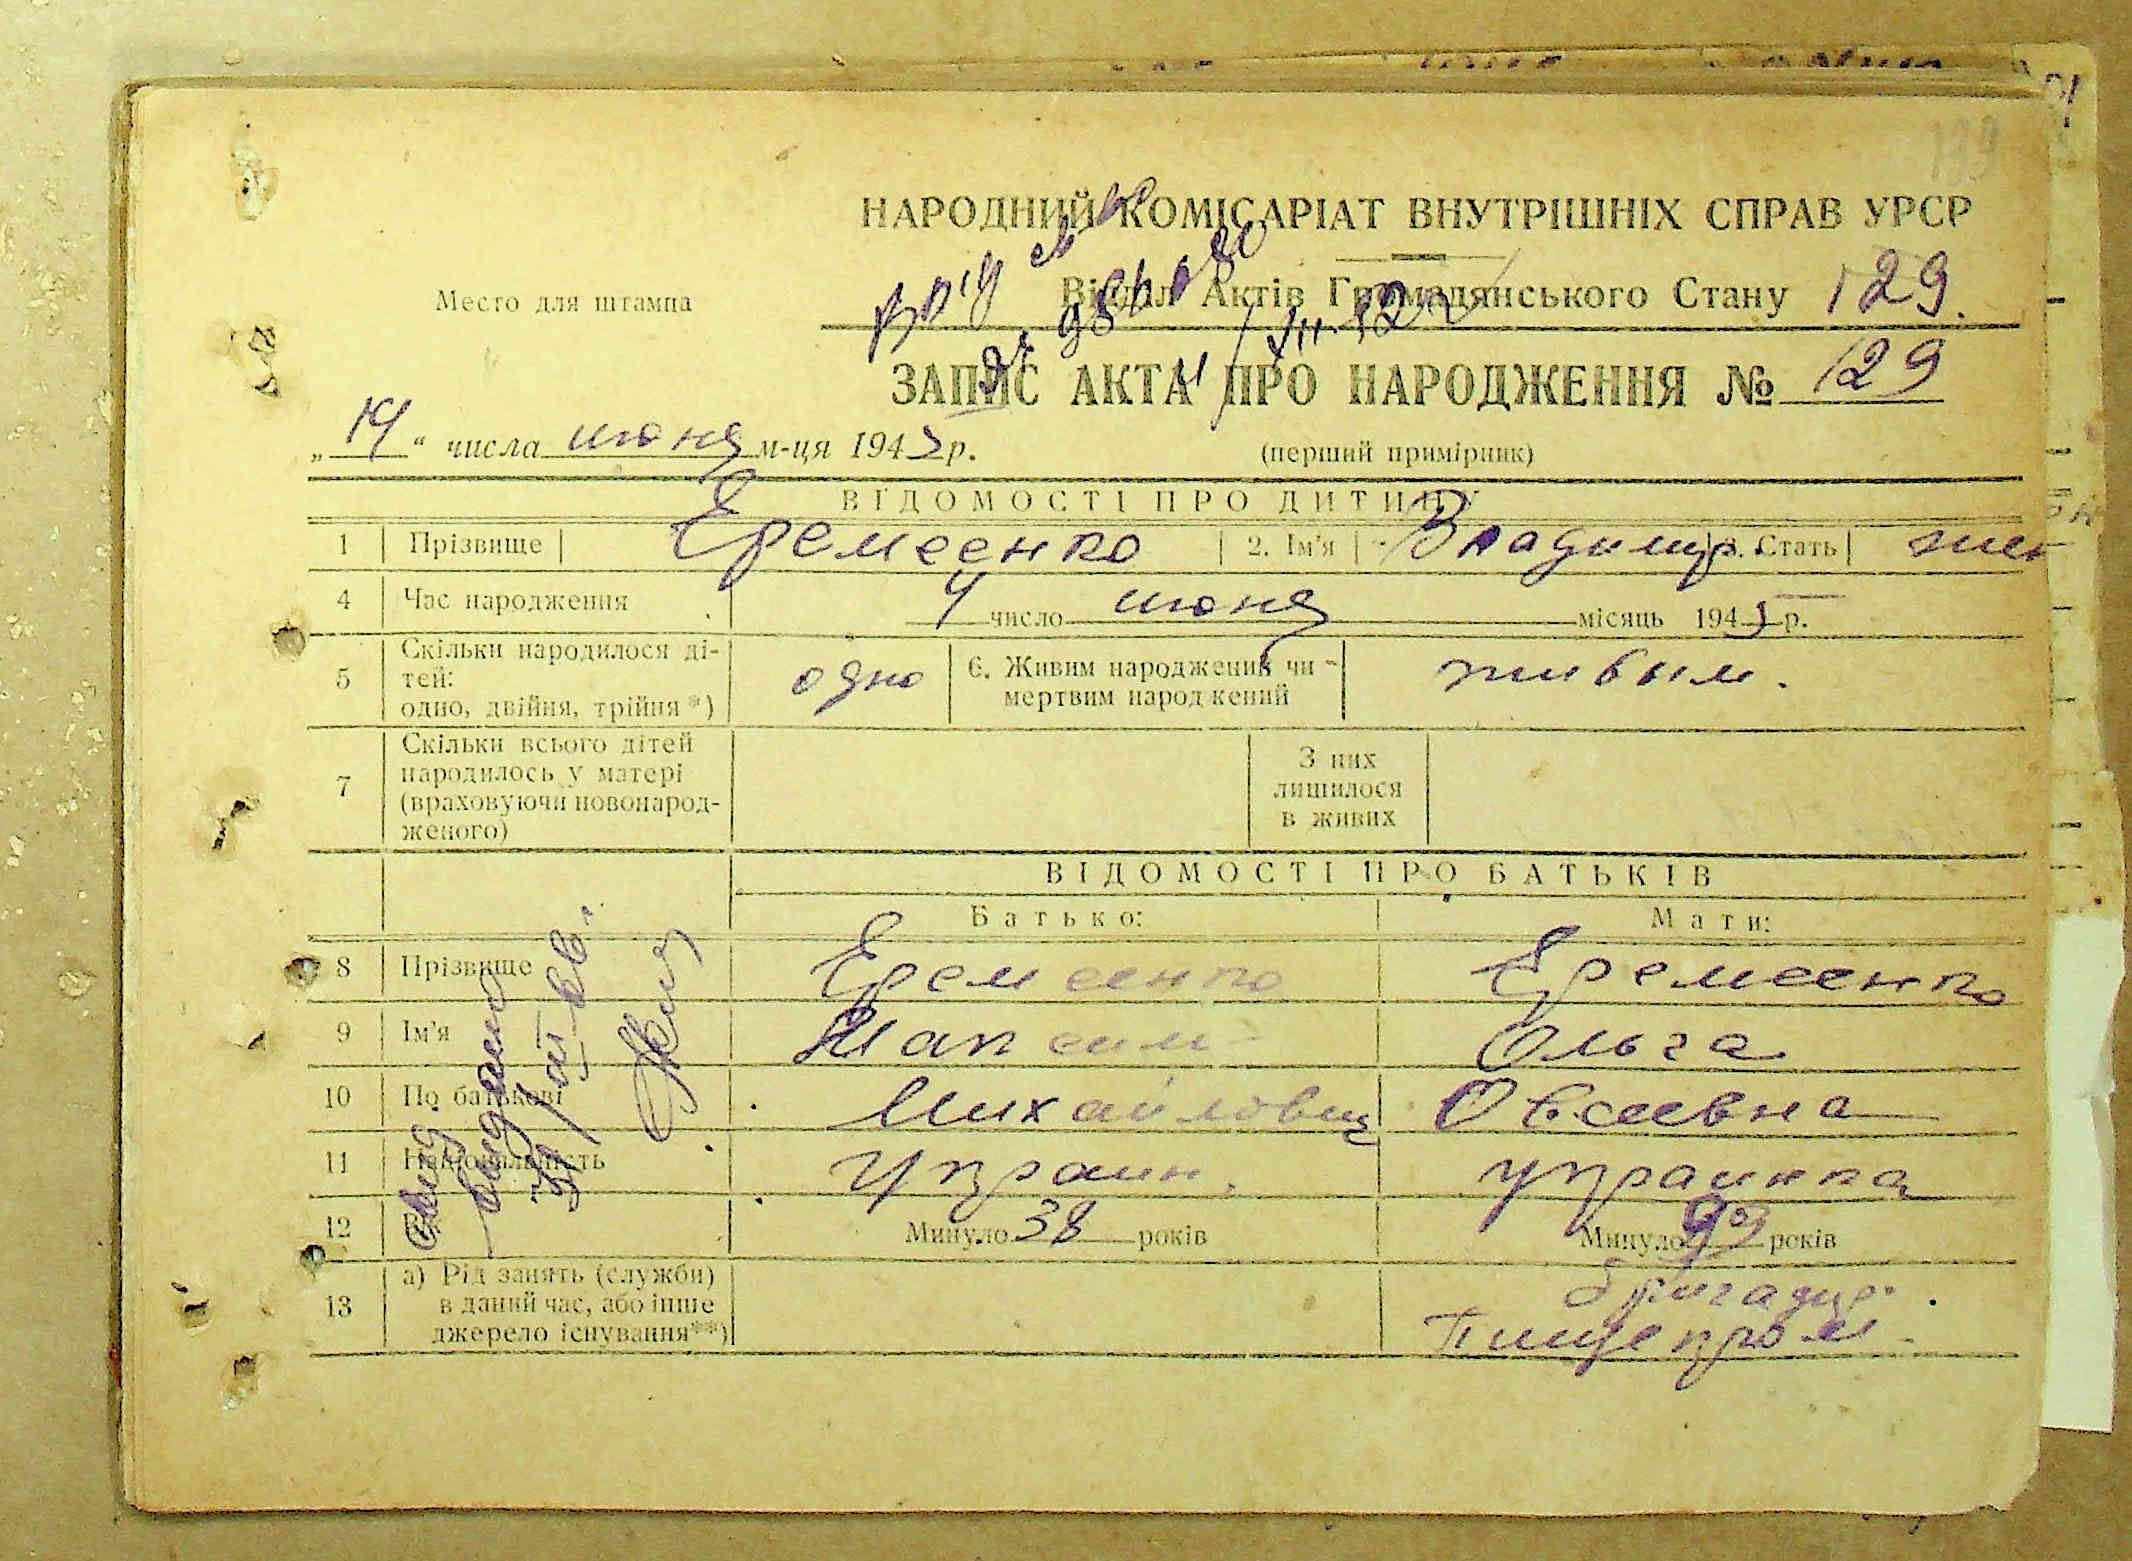 НАРОДНИЙ КОМІСАРІАТ ВНУТРІШНІХ СПРАВ УРСР
Место для штампа
Відділ Актів Громадянського Стану 129.
ЗАПИС АКТА ПРО НАРОДЖЕННЯ № 129
„14“ числа июня м-ця 194 р.
(перший примірник)
ВІДОМОСТІ ПРО ДИТИНУ
1 Прізвище Еремеенко 2. Ім'я Владимир 3. Стать
4 Час народження 4 число июня місяць 194 р.
5 Скільки народилося ді-
тей:
одно, двійня, трійня*) одно
Є. Живим народжений чи
мертвим народжений живым.
7 Скільки всього дітей
народилось у матері
(враховуючи новонарод-
женого)
З них
лишилося
в живих
ВІДОМОСТІ ПРО БАТЬКІВ
Батько: Мати:
8 Прізвище Еремеенко Еремеенко
9 Ім'я Максим Ольга
10 По батькові Михайлович Овсеевна
11 Національність Украин. украинка
12 Минуло 38 років Минуло років
13 а) Рід занять (служби)
в даний час, або інше
джерело існування**)
бригадир.
Пищепром.